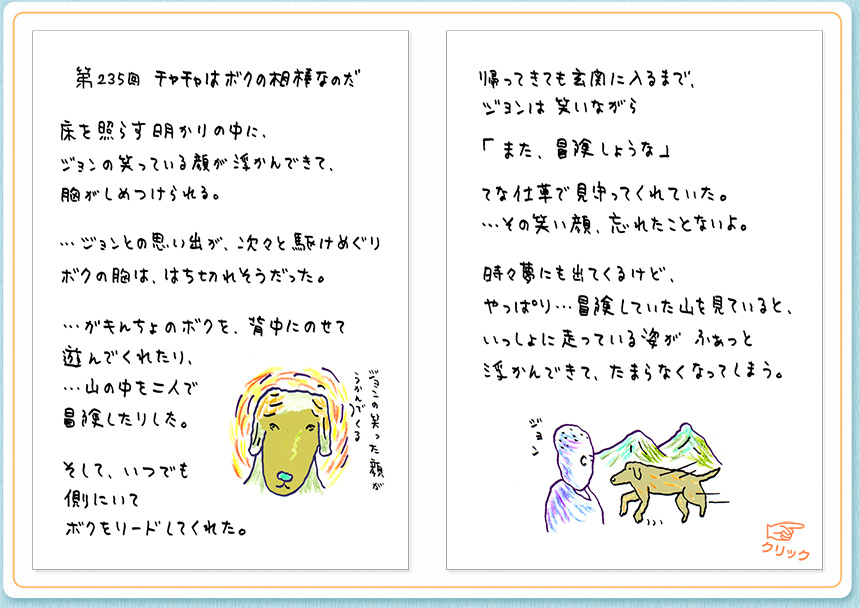 第235回 チャチャはボクの相棒なのだ
床を照らす明かりの中に、
ジョンの笑っている顔が浮かんできて、
胸がしめつけられる。
…ジョンとの思い出が、次々と駆けめぐり
ボクの胸は、はち切れそうだった。
…がきんちょのボクを、背中にのせて
遊んでくれたり、
…山の中を二人で
冒険したりした。
そして、いつでも
側にいて
ボクをリードしてくれた。
ジョンの笑った顔が
うかんでくる
帰ってきても玄関に入るまで、
ジョンは笑いながら
「また、冒険しょうな」
てな仕草で見守ってくれていた。
…その笑い顔、忘れたことないよ。
時々夢にも出てくるけど、
やっぱり…冒険していた山を見ていると、
いっしょに走っている姿が ふぁっと
浮かんできて、たまらなくなってしまう。
ジョン
クリック